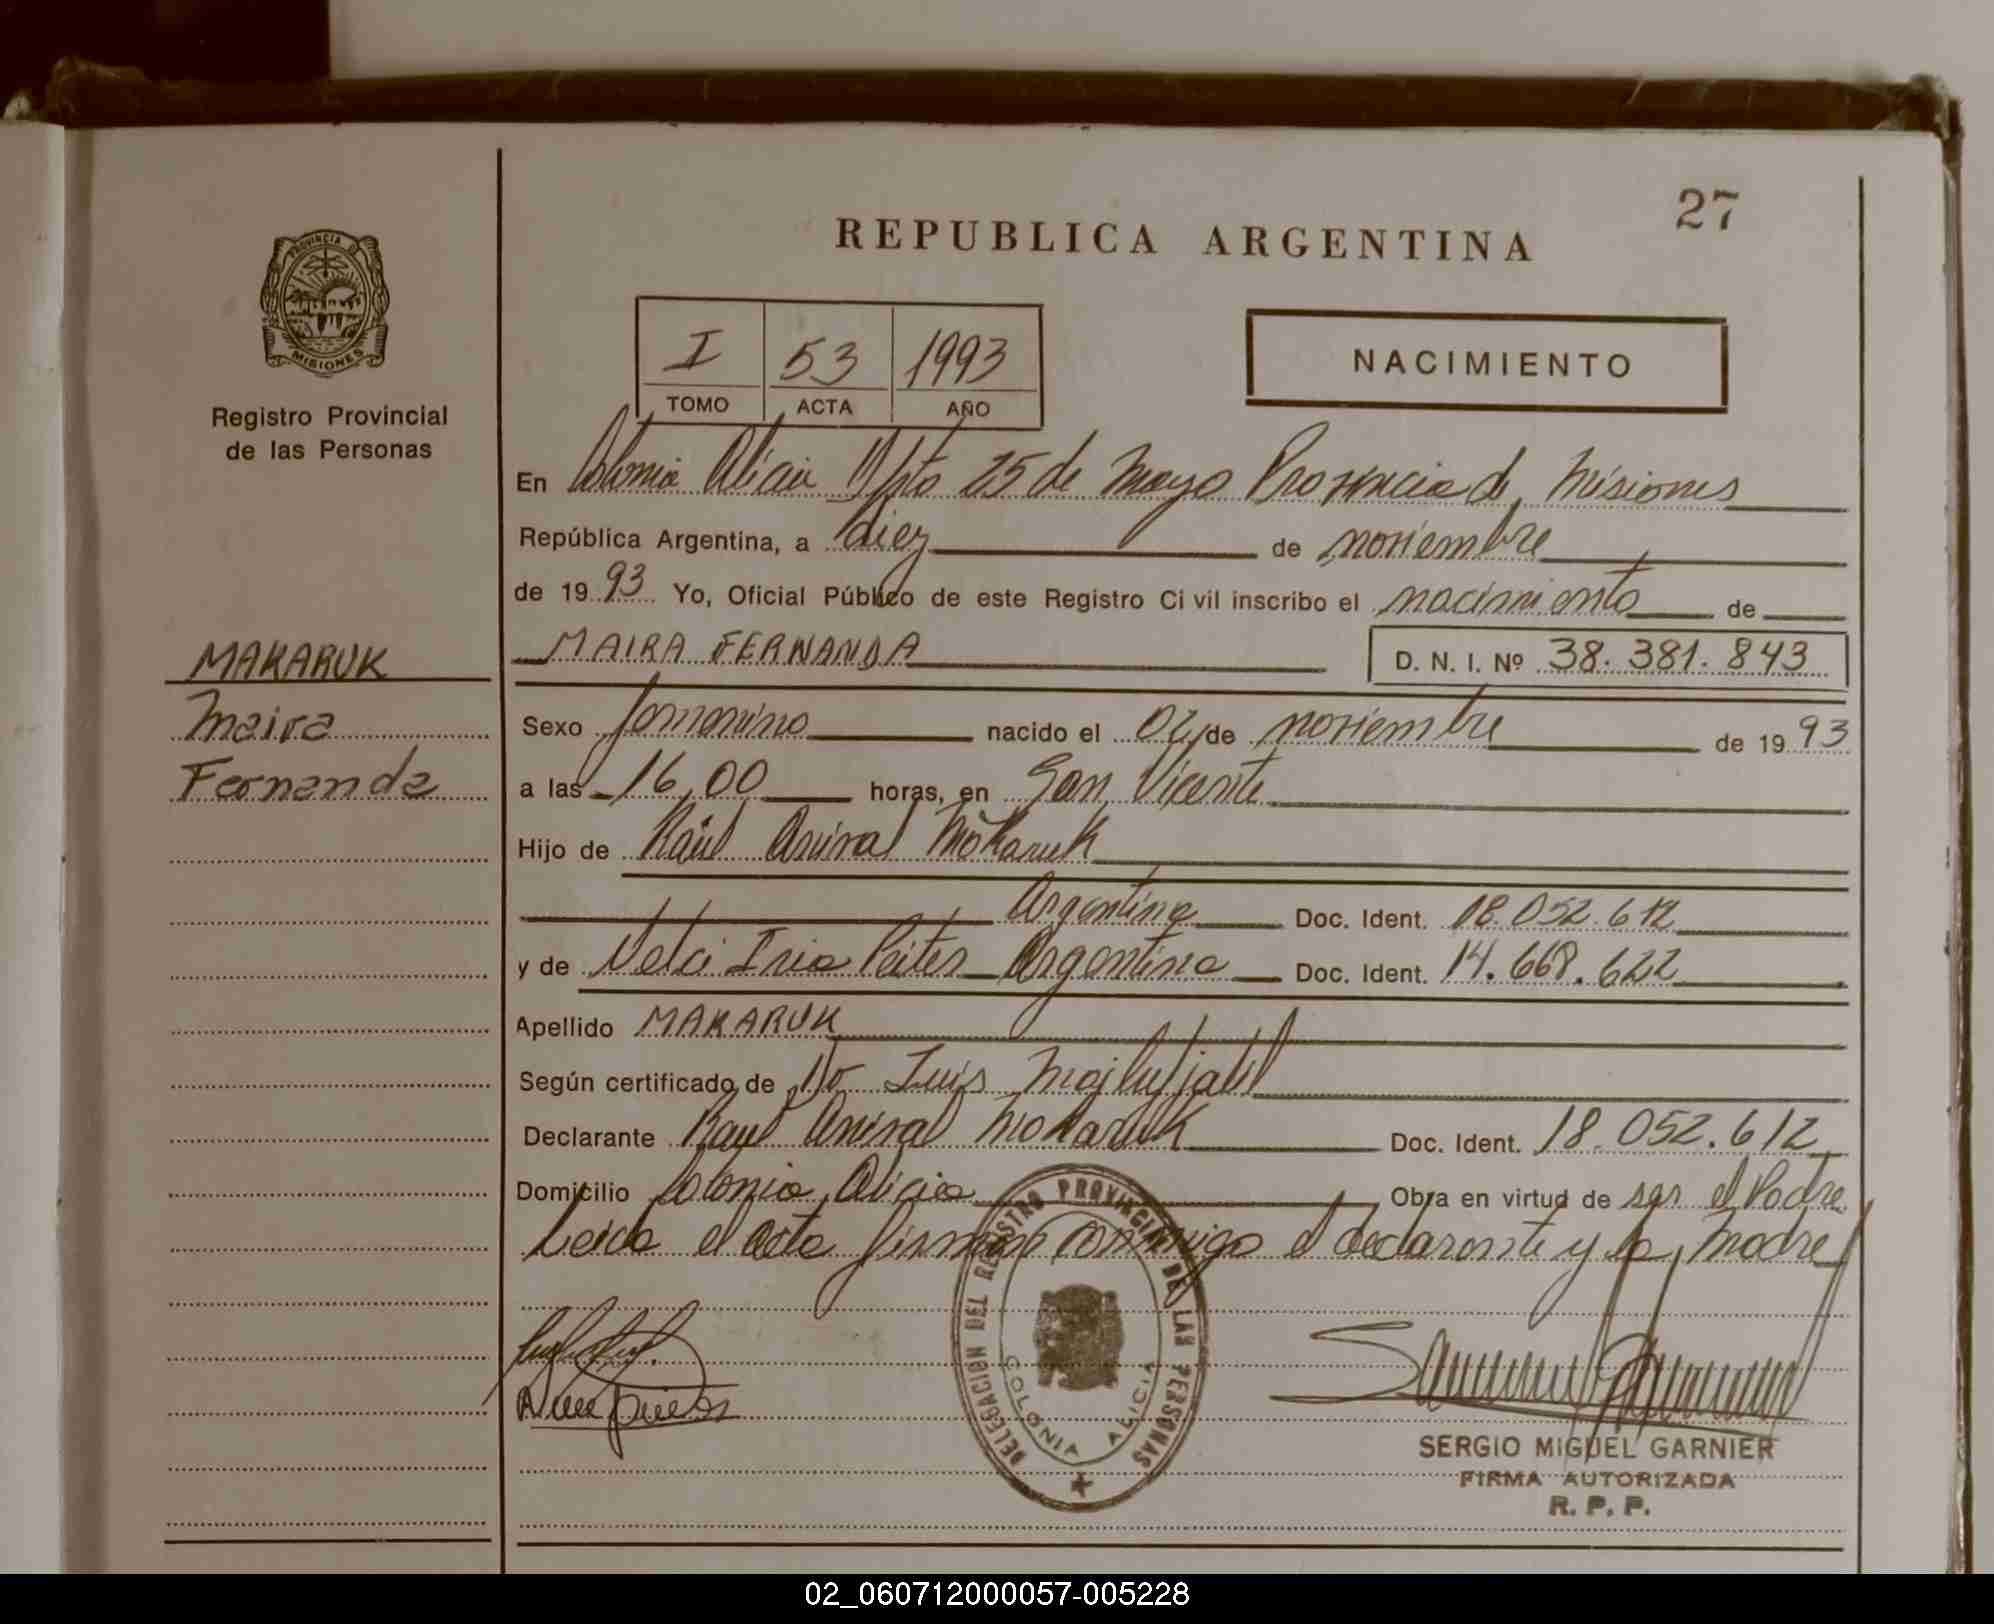 27
REPUBLICA ARGENTINA
PROVINCIA D MISIONES
Registro Provincial
de las Personas
I 53 1993
TOMO ACTA AÑO
NACIMIENTO
En Colonia Alicia Dpto 25 de Mayo Provincia de Misiones
República Argentina, a diez de noviembre
de 1993 Yo, Oficial Público de este Registro Ci vil inscribo el nacimiento de
MAIRA FERNANDA D. N. I. Nº 38.381.843
MAKARUK
Maira
Fernanda
Sexo femenino nacido el 02 de noviembre de 1993
a las 16,00 horas, en San Vicente
Hijo de Raúl Makaruk
Argentina Doc. Ident. 18.052.612
y de Nelci Argentina Doc. Ident. 14.668.622
Apellido MAKARUK
Según certificado de Dr Luis
Declarante Raul Makaruk Doc. Ident. 18.052.612
Domicilio Colonia Alicia Obra en virtud de ser el Padre
Leida el acta firman conmigo el declarante y la Madre
DELEGACION DEL REGISTRO PROVINCIAL DE LAS PERSONAS
COLONIA ALICIA
SERGIO MIGUEL GARNIER
FIRMA AUTORIZADA
R. P. P.
02_060712000057-005228